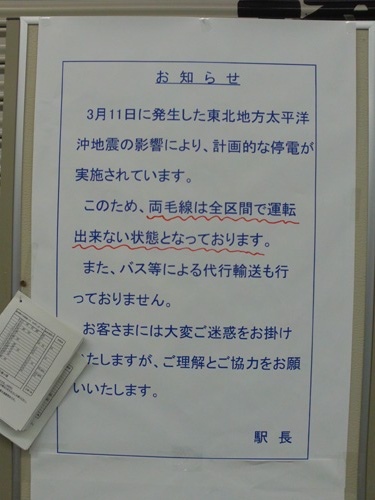 お知らせ
3月11日に発生した東北地方太平洋
沖地震の影響により、計画的な停電が
実施されています。
このため、両毛線は全区間で運転
出来ない状態となっております。
また、バス等による代行輸送も行
っておりません。
お客さまには大変ご迷惑をお掛け
たしますが、ご理解とご協力をお願
いいたします。
駅長